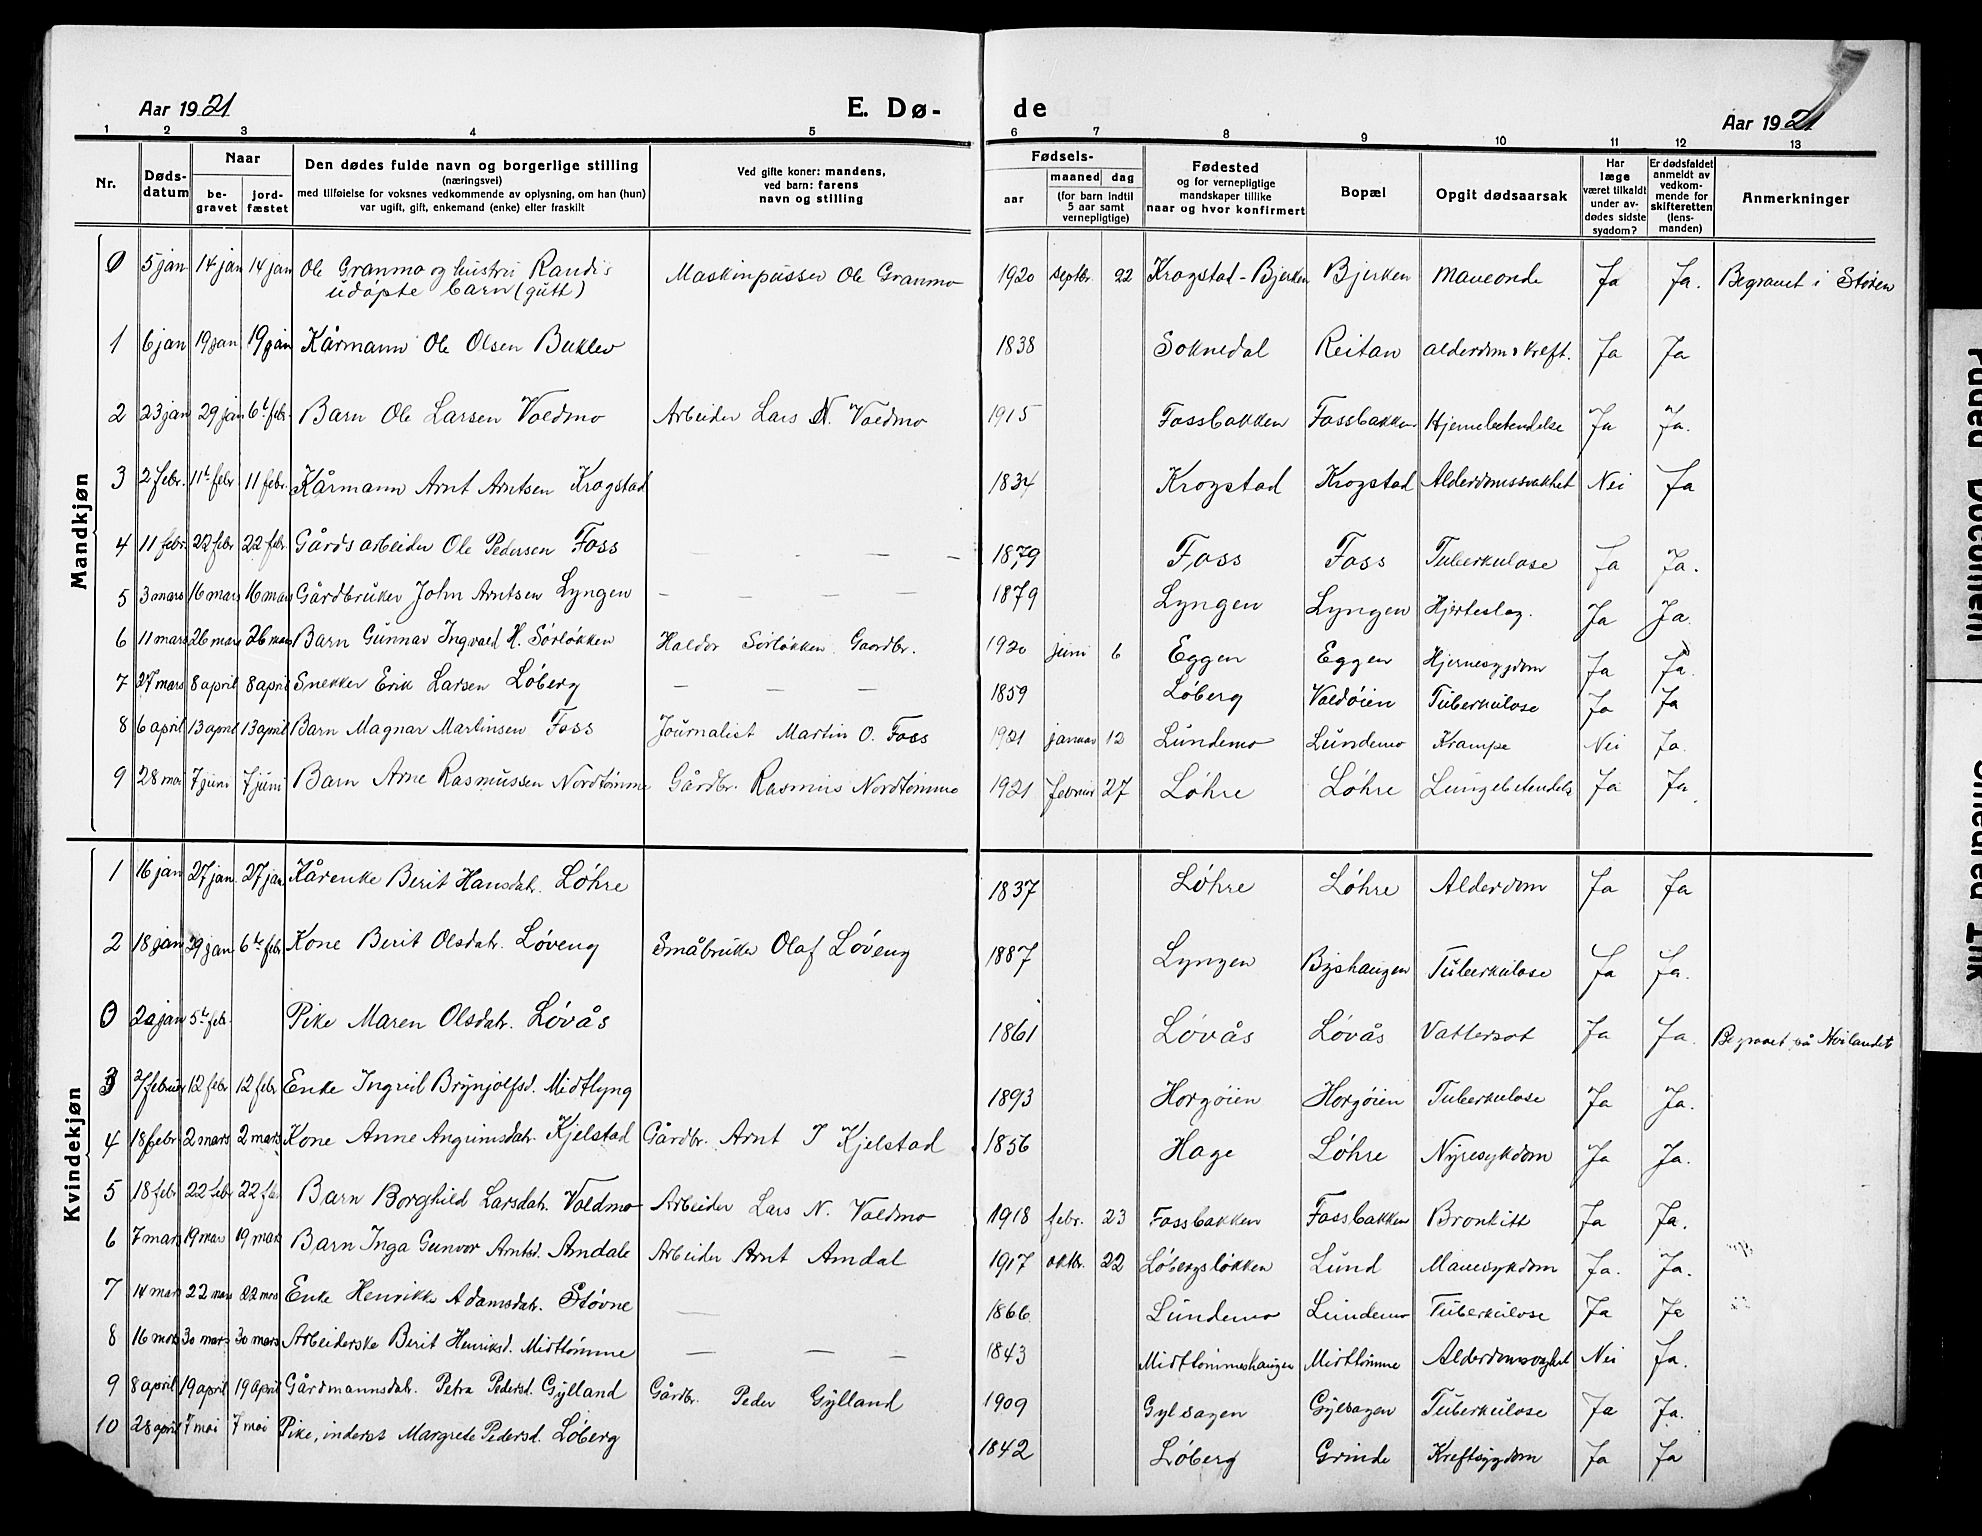 Aar 1921 E. Dø- de Aar 1921
1 2 3 4 5 6 7 8 9 10 11 12 13
Nr. Døds-datum Naar be-gravet jord-fæstet Den dødes fulde navn og borgerlige stilling (næringsvei) med tilføielse for voksnes vedkommende av oplysning, om han (hun) var ugift, gift, enkemand (enke) eller fraskilt Ved gifte koner: mandens, ved barn: farens navn og stilling Fødsels- aar maaned dag (for barn indtil 5 aar samt vernepligtige) Fødested og for vernepligtige mandskaper tillike naar og hvor konfirmert Bopæl Opgit dødsaarsak Har læge været tilkaldt under av-dødes sidste sygdom? Er dødsfaldet anmeldt av vedkom-mende for skifteretten (lens-manden) Anmerkninger
Mandkjøn
0 5 jan 14 jan 14 jan Ole Granmo og hustru Randis udøpte barn (gutt) Maskinpusser Ole Granmo 1920 septbr. 22 Krogstad-Bjerken Bjerken Maveonde Ja Ja. Begravet i Støren
1 6 jan 19 jan 19 jan Kårmann Ole Olsen Buklev 1838 Soknedal Reitan alderdom & kreft. Ja Ja
2 23 jan 29 jan 6t febr. Barn Ole Larsen Voldmo Arbeider Lars N. Voldmo 1915 Fossbakken Fossbakken Hjernebetendelse Ja Ja.
3 2 febr. 11t febr 11 febr. Kårmann Arnt Arntsen Krogstad 1834 Krogstad Krogstad Alderdomssvakhet Nei Ja
4 11 febr. 22 febr 22 febr. Gårdsarbeider Ole Pedersen Foss — — — 1879 Foss Foss Tuberkulose Ja Ja.
5 3 mars 16 mars 16 mars Gårdbruker John Arntsen Lyngen — — — — 1879 Lyngen Lyngen Hjerteslag. Ja Ja.
6 11 mars 26 mars 26 mars Barn Gunnar Ingvald H. Sørløkken Haldor Sørløkken Gaardbr. 1920 juni 6 Eggen Eggen Hjernesygdom Ja Ja.
7 27 mars 8 april 8 april Snekker Erik Larsen Løberg — — — 1859 Løberg Voldøien Tuberkulose Ja Ja
8 6 april 13 april 13 april Barn Magnar Martinsen Foss Journalist Martin O. Foss 1921 januar 12 Lundemo Lundemo Krampe Nei Ja.
9 28 mai 7 juni 7 juni Barn Arne Rasmussen Nordtømme Gårdbr. Rasmus Nordtømme 1921 februar 27 Løhre Løhre Lungebetendels Ja Ja.
Kvindekjøn
1 16 jan 27 jan. 27 jan. Kårenke Berit Hansdatr. Løhre 1837 Løhre Løhre Alderdom Ja Ja
2 18 jan 29 jan 6te febr Kone Berit Olsdatr. Løveng Småbruker Olaf Løveng 1887 Lyngen Byshaugen Tuberkulose Ja Ja.
0 20 jan 5t febr. Pike Maren Olsdatr. Løvås 1861 Løvås Løvås Vattersot Ja Ja. Begravet på Høilandet
3 7 februar 12 febr 12 febr Enke Ingril Brynjolfsd. Midtlyng 1893 Horgøien Horgøien Tuberkulose Ja Ja.
4 18 febr 2 mars 2 mars Kone Anne Angrimsdatr. Kjelstad Gårdbr. Arnt I Kjelstad 1856 Hage Løhre Nyresykdom Ja Ja.
5 18 febr 22 febr 22 febr Barn Borghild Larsdatr. Voldmo Arbeider Lars N. Voldmo 1918 febr. 23 Fossbakken Fossbakken Bronkitt Ja Ja.
6 7 mars 19 mar 19 mar Barn Inga Gunvor Arntsd. Amdale Arbeider Arnt Amdal 1917 oktbr. 22 Løbergsløkken Lund Mavesykdom Ja. Ja.
7 14 mars 22 mars 22 mars Enke Henrikke Adamsdatr. Støvne — 1866 Lundemo Lundemo Tuberkulose Ja Ja
8 16 mars 30 mars 30 mars Arbeiderske Berit Henriksd. Midttømme — — — 1843 Midttømmeshaugen Midttømme Alderdomsvaghet Nei Ja.
9 8 april 19 april 19 April Gårdmannsdatr. Petra Pedersd. Gylland Gårdbr. Peder Gylland 1909 Gylsagen Gylsagen Tuberkulose Ja Ja.
10 28 april 7 mai 7 mai Pike, inderst Margrete Pedersd. Løberg 1842 Løberg Grinde Kreftsygdom Ja Ja